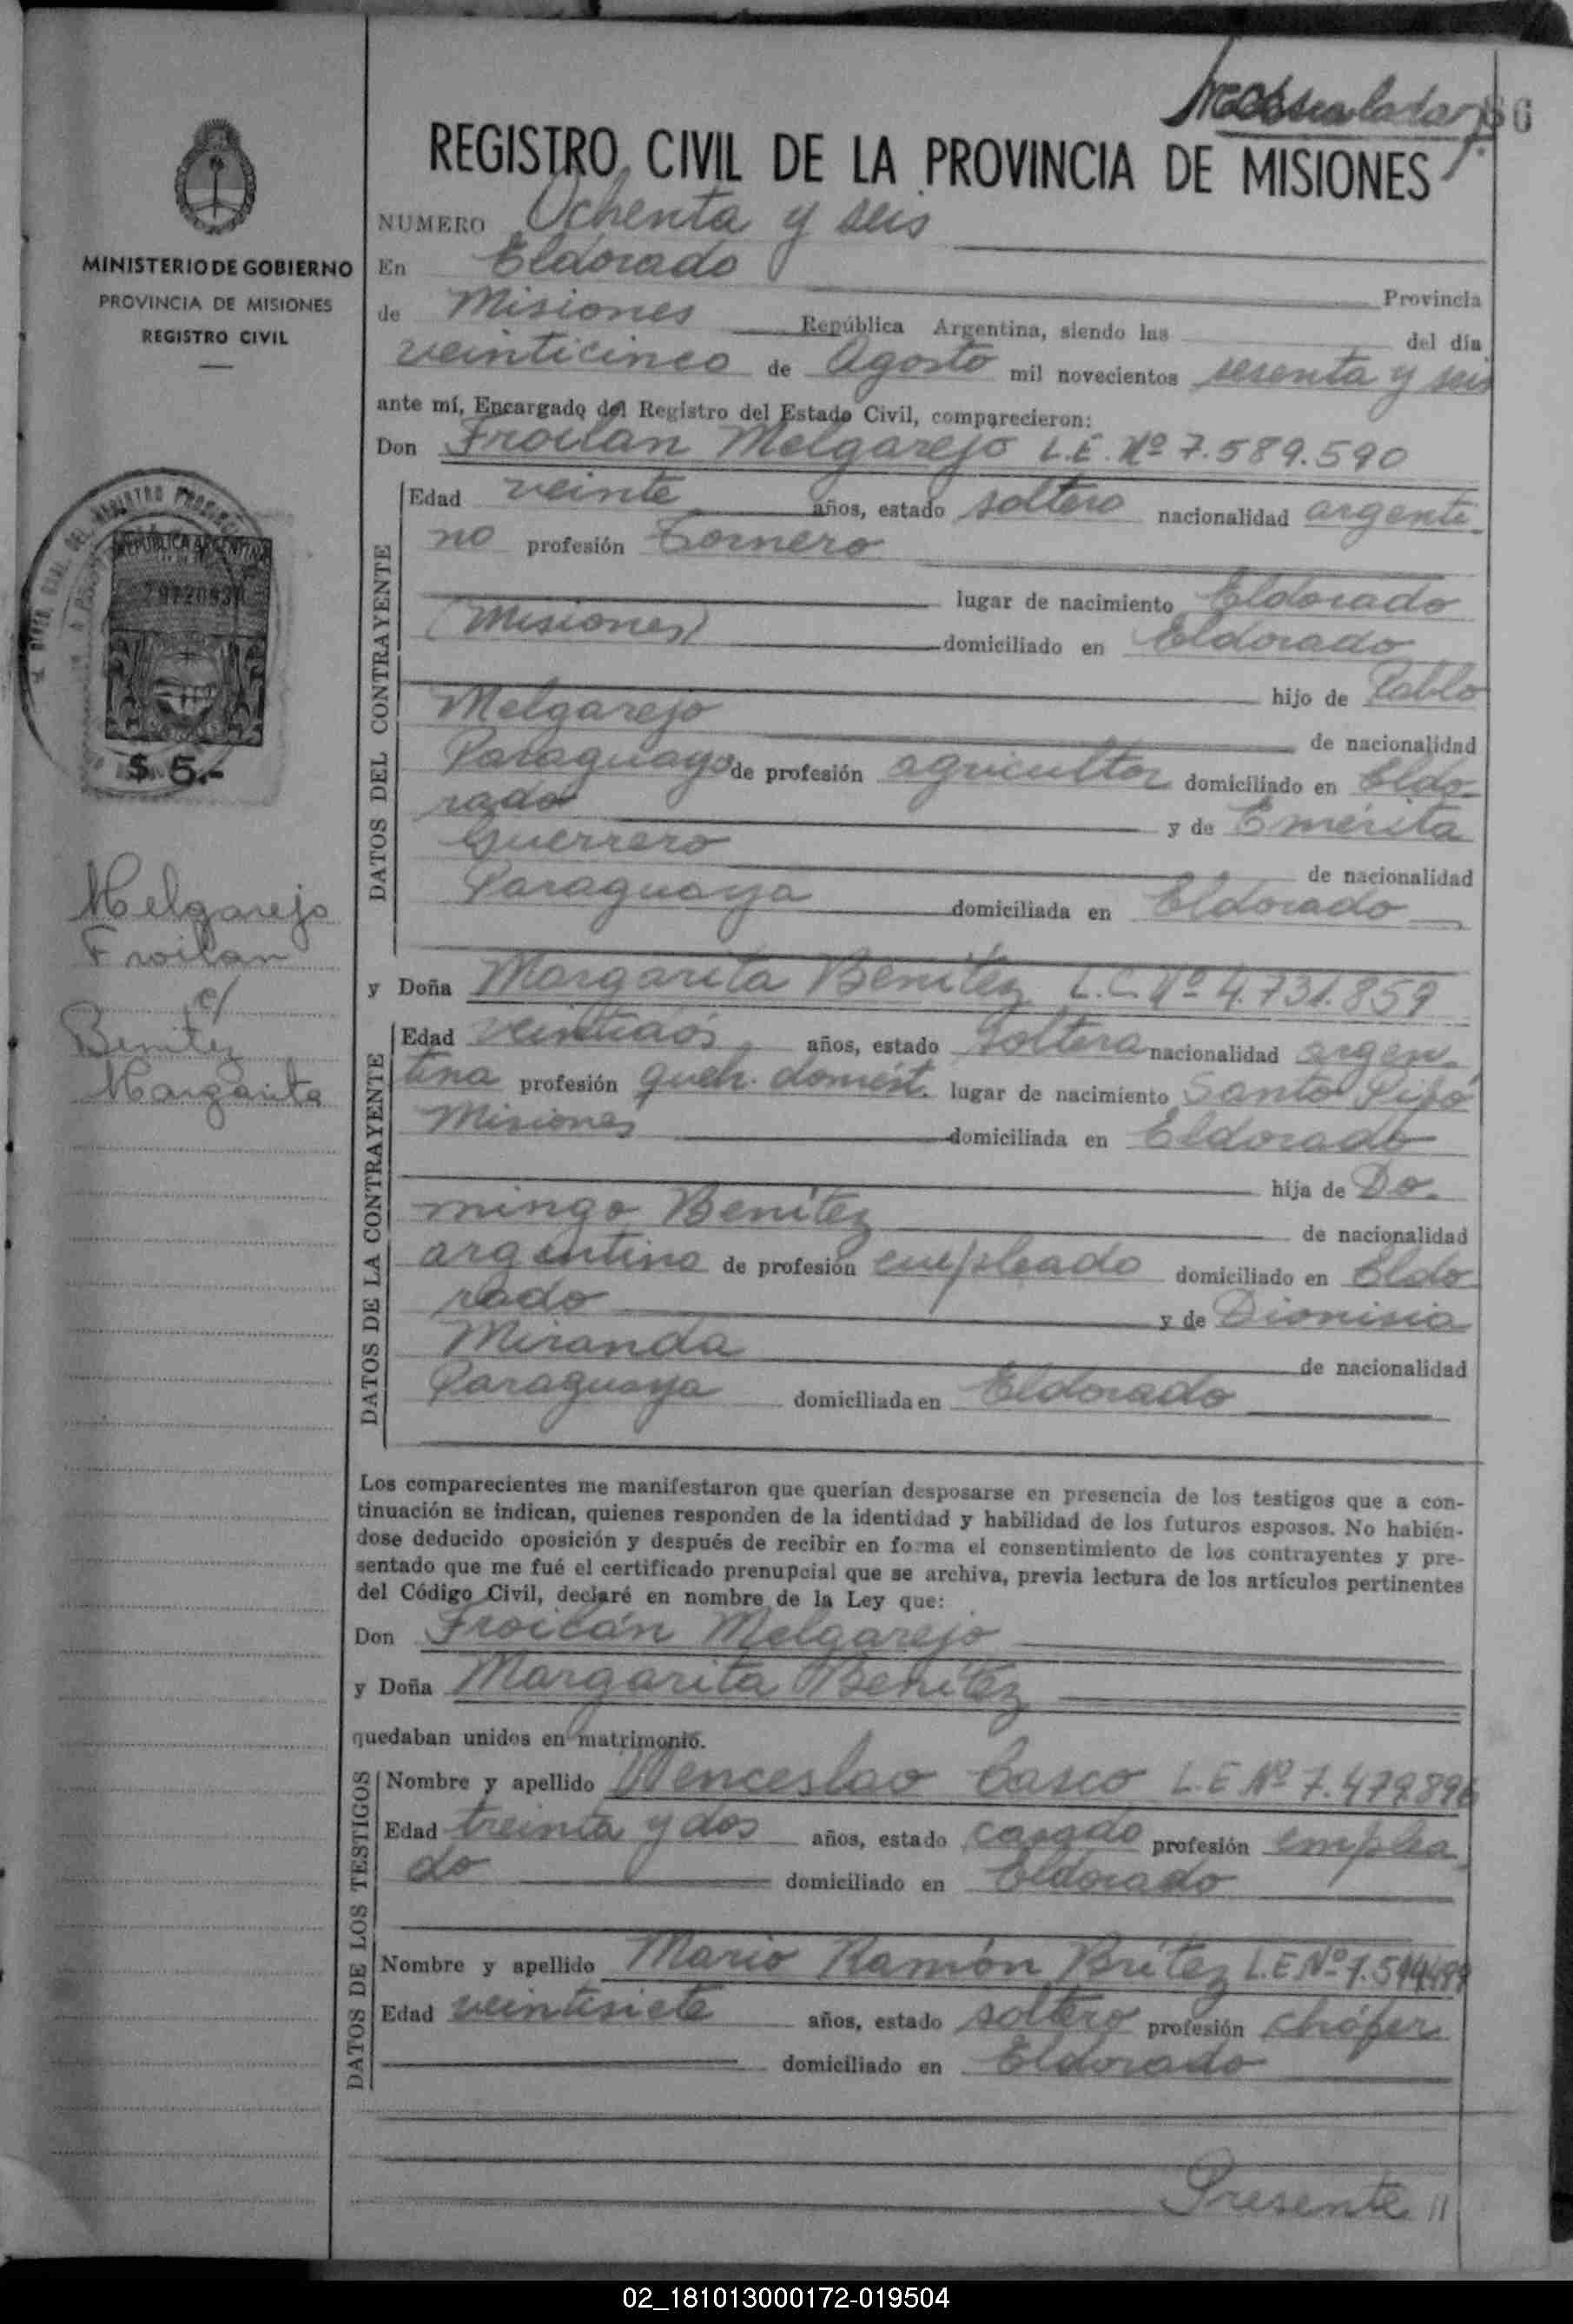 86
REGISTRO CIVIL DE LA PROVINCIA DE MISIONES
MINISTERIO DE GOBIERNO
PROVINCIA DE MISIONES
REGISTRO CIVIL
NUMERO Ochenta y seis
En Eldorado Provincia
de Misiones República Argentina, siendo las del día
veinticinco de Agosto mil novecientos sesenta y seis
ante mí, Encargado del Registro del Estado Civil, comparecieron:
Don Froilan Melgarejo L.E. Nº 7.589.590
DATOS DEL CONTRAYENTE
Edad veinte años, estado soltero nacionalidad argenti-
no profesión Tornero
lugar de nacimiento Eldorado
(Misiones) domiciliado en Eldorado
hijo de Pablo
Melgarejo de nacionalidad
Paraguayo de profesión agricultor domiciliado en Eldo-
rado y de Emérita
Guerrero de nacionalidad
Paraguaya domiciliada en Eldorado
REPUBLICA ARGENTINA
$ 5.-
Melgarejo
Froilan
c/
Benitez
Margarita
y Doña Margarita Benítez L.C. Nº 4.731.859
DATOS DE LA CONTRAYENTE
Edad veintidós años, estado soltera nacionalidad argen-
tina profesión queh. domést. lugar de nacimiento Santo Pipó
Misiones domiciliada en Eldorado
hija de Do-
mingo Benítez de nacionalidad
argentino de profesión empleado domiciliado en Eldo
rado y de Dionisia
Miranda de nacionalidad
Paraguaya domiciliada en Eldorado
Los comparecientes me manifestaron que querían desposarse en presencia de los testigos que a con-
tinuación se indican, quienes responden de la identidad y habilidad de los futuros esposos. No habién-
dose deducido oposición y después de recibir en forma el consentimiento de los contrayentes y pre-
sentado que me fué el certificado prenupcial que se archiva, previa lectura de los artículos pertinentes
del Código Civil, declaré en nombre de la Ley que:
Don Froilán Melgarejo
y Doña Margarita Benítez
quedaban unidos en matrimonio.
DATOS DE LOS TESTIGOS
Nombre y apellido Wenceslao Casco L.E Nº 7.479.896
Edad treinta y dos años, estado casado profesión emplea-
do domiciliado en Eldorado
Nombre y apellido Mario Ramón Brítez L.E Nº
Edad veintisiete años, estado soltero profesión chófer
domiciliado en Eldorado
Presente //
02_181013000172-019504